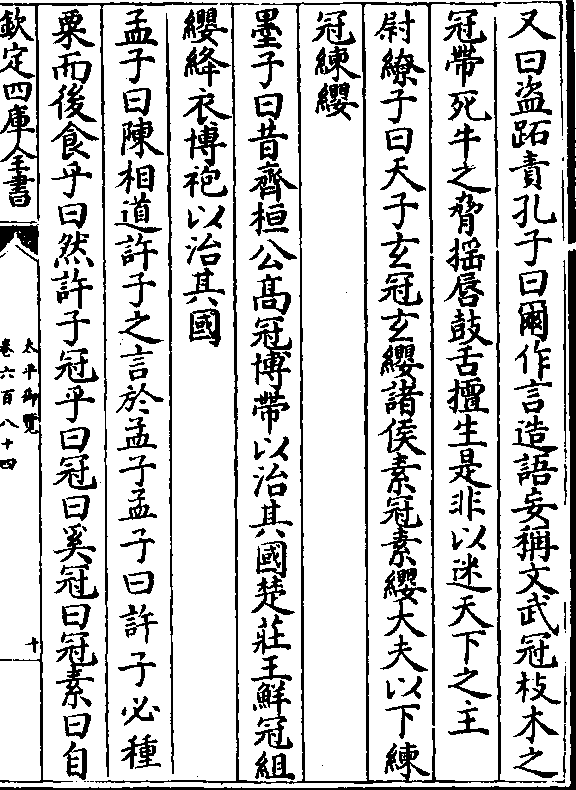 又曰盜跖責孔子曰爾作言造語妄稱文武冠枝木之
冠帶死牛之脅揺唇鼓舌擅生是非以迷天下之主
尉繚子曰天子玄冠玄纓諸侯素冠素纓大夫以下練
冠練纓
墨子曰昔齊桓公髙冠博帶以治其國楚莊王鮮冠組
纓絳衣博袍以治其國
孟子曰陳相道許子之言於孟子孟子曰許子必種
粟而後食乎曰然許子冠乎曰冠曰奚冠曰冠素曰自
欽定四庫全書
太平御覽
卷六百八十四
十